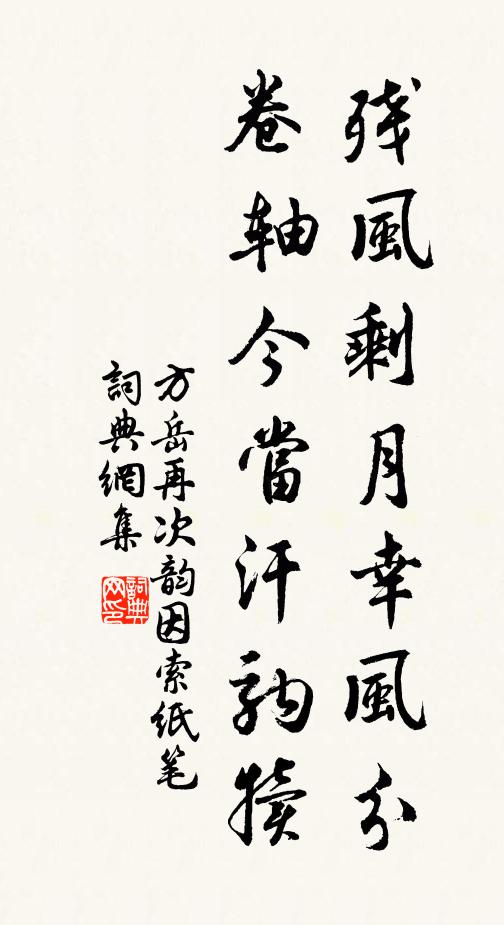 残風剩月幸風分
卷軸今當汗犢
方岳再次韵因索紙笔
詞典網集
詞典網印